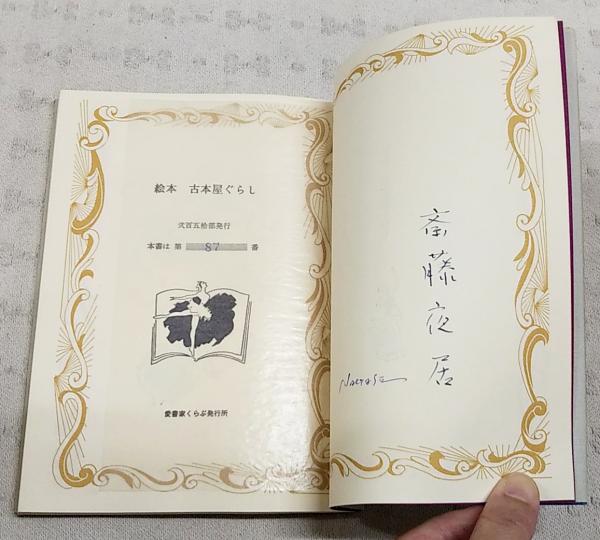 斎藤夜居
絵本 古本屋ぐらし
弐百五拾部発行
本書は 第 87 番
愛書家くらぶ発行所